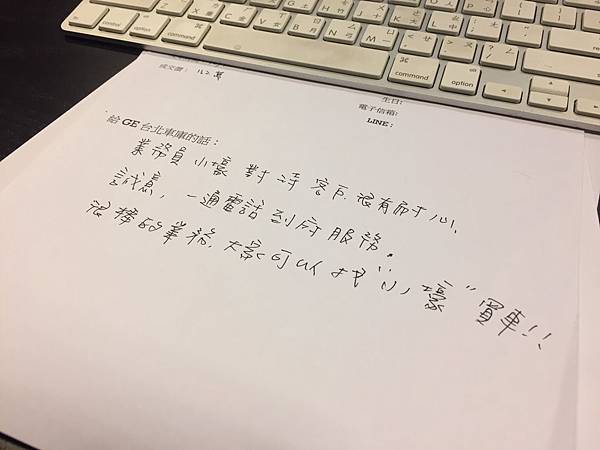 成交價：
生日:
電子信箱:
LINE：
給 GE 台北車庫的話：
業務員小壕 對待客戶 很有耐心,
誠意, 一通電話到府服務.
很棒的業務. 大家可以找"小壕"買車!!
control
option
command
command
option